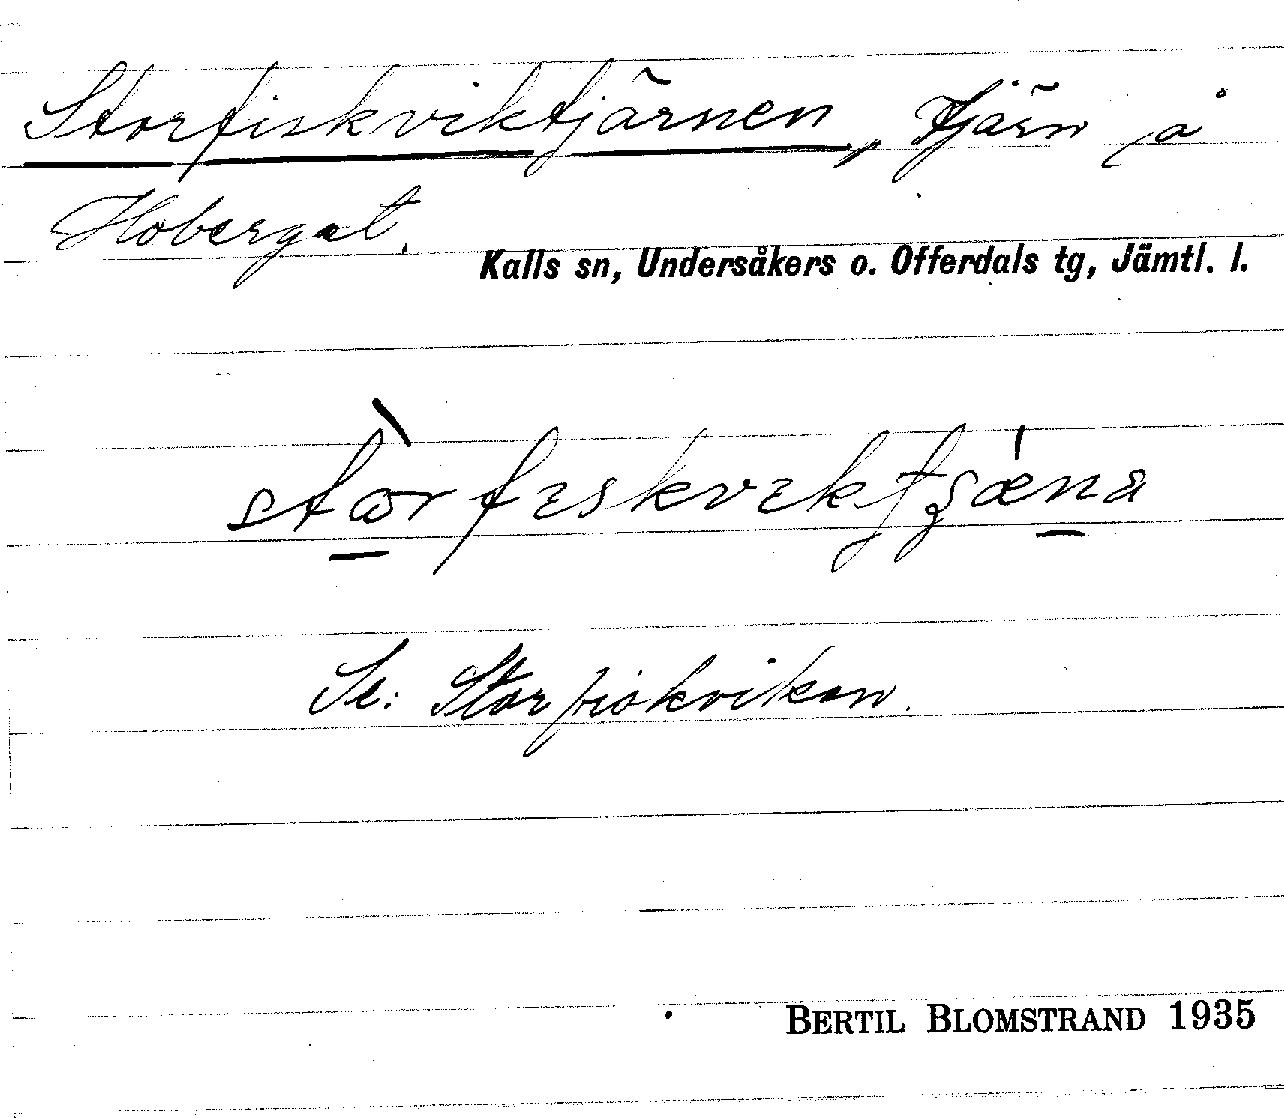 Storfiskviktjärnen, tjärn på
Hoberget.
Kalls sn, Undersåkers o. Offerdals tg, Jämtl. l.
Se: Storfiskviken.
BERTIL BLOMSTRAND 1935